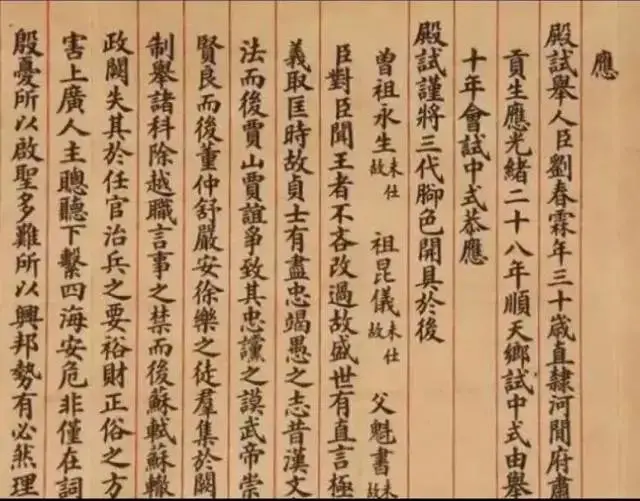 應
殿試舉人臣劉春霖年三十歲直隸河閒府肅
貢生應光緒二十八年順天鄉試中式由舉
十年會試中式恭應
殿試謹將三代腳色開具於後
曾祖永生未仕故 祖昆儀未仕故 父魁書未仕故
臣對臣聞王者不吝改過故盛世有直言極
義取匡時故貞士有盡忠竭愚之志昔漢文
法而後賈山賈誼爭致其忠讜之謨武帝崇
賢良而後董仲舒嚴安徐樂之徒羣集於闕
制舉諸科除越職言事之禁而後蘇軾蘇轍
政闕失其於任官治兵之要裕財正俗之方
害上廣人主聰聽下繫四海安危非僅在詞
殷憂所以啟聖多難所以興邦勢有必然理